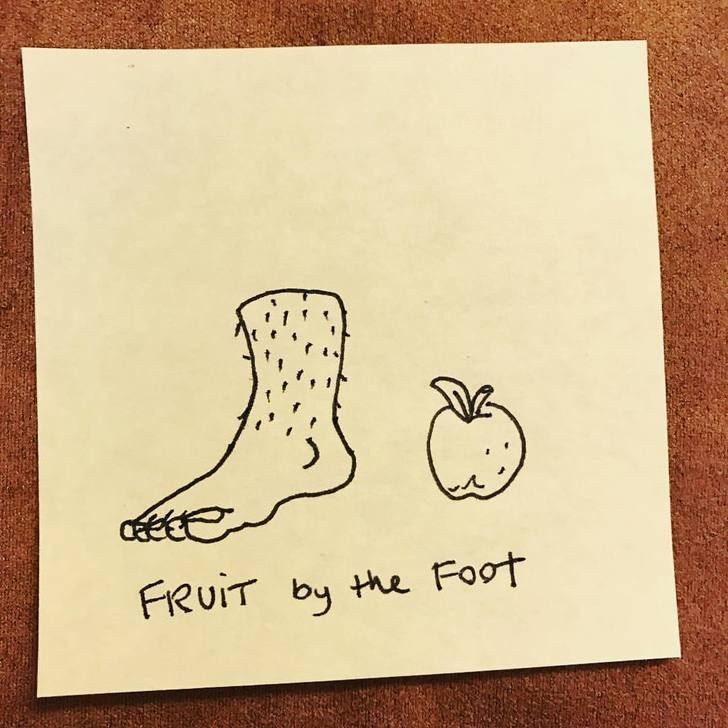 FRUIT by the FOOT